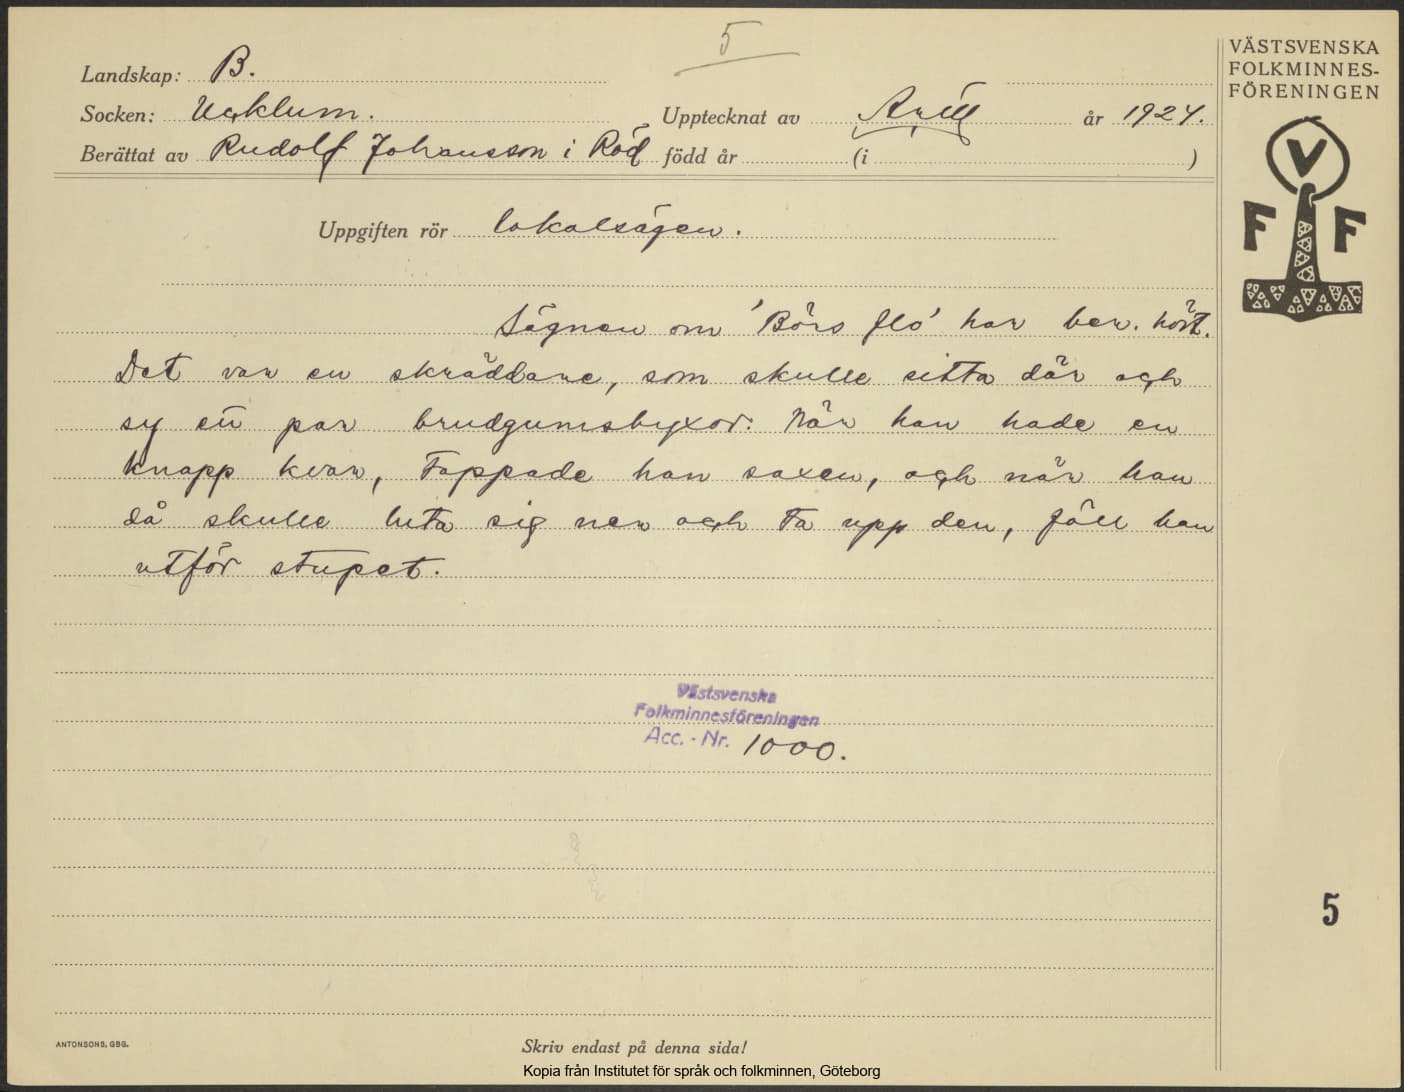 5
VÄSTSVENSKA
FOLKMINNES-
FÖRENINGEN
Landskap: B.
Socken: Ucklum.
Upptecknat av år 1924.
Berättat av Rudolf Johansson i Röd född år (i )
V
F F
Uppgiften rör lokalsägen.
Sägnen om 'Börs flo' har ber. hört.
Det var en skräddare, som skulle sitta där och
sy ett par brudgumsbyxor. När han hade en
knapp kvar, tappade han saxen, och när han
då skulle luta sig ner och ta upp den, föll han
utför stupet.
Västsvenska
Folkminnesföreningen
Acc. - Nr. 1000.
5
ANTONSONS, GBG.
Skriv endast på denna sida!
Kopia från Institutet för språk och folkminnen, Göteborg